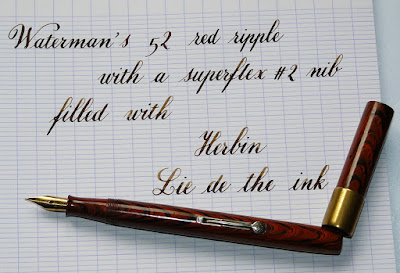 Waterman's 52 red ripple
with a superflex #2 nib
filled with
Herbin
Lie de the ink